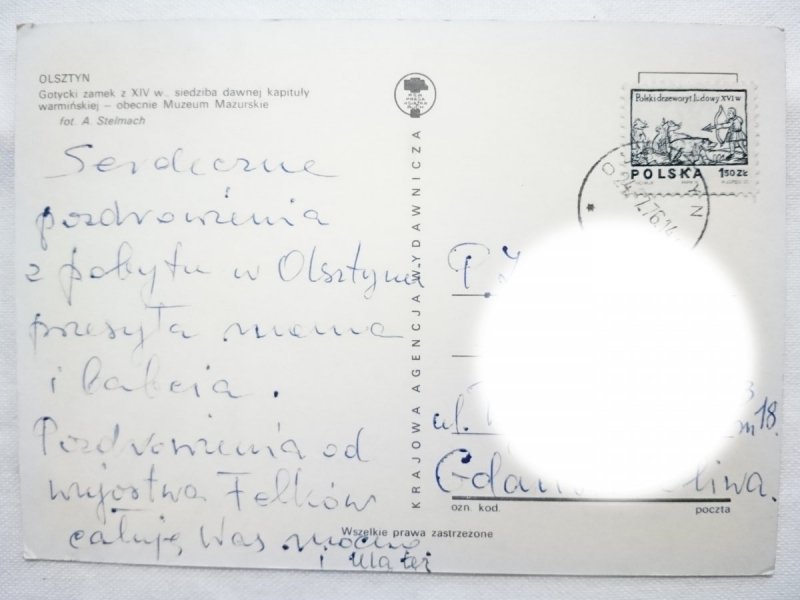 OLSZTYN
Gotycki zamek z XIV w., siedziba dawnej kapituły
warmińskiej – obecnie Muzeum Mazurskie
fot. A. Stelmach
Serdeczne
pozdrowienia
z pobytu w Olsztynie
przesyła mama
i babcia.
Pozdrowienia od
wujostwa Felków
całuję Was mocno
i
KRAJOWA AGENCJA WYDAWNICZA
Wszelkie prawa zastrzeżone
Polski drzeworyt ludowy XVI w
POLSKA 1.50 ZŁ
P.
ul.
18.
ozn. kod. poczta